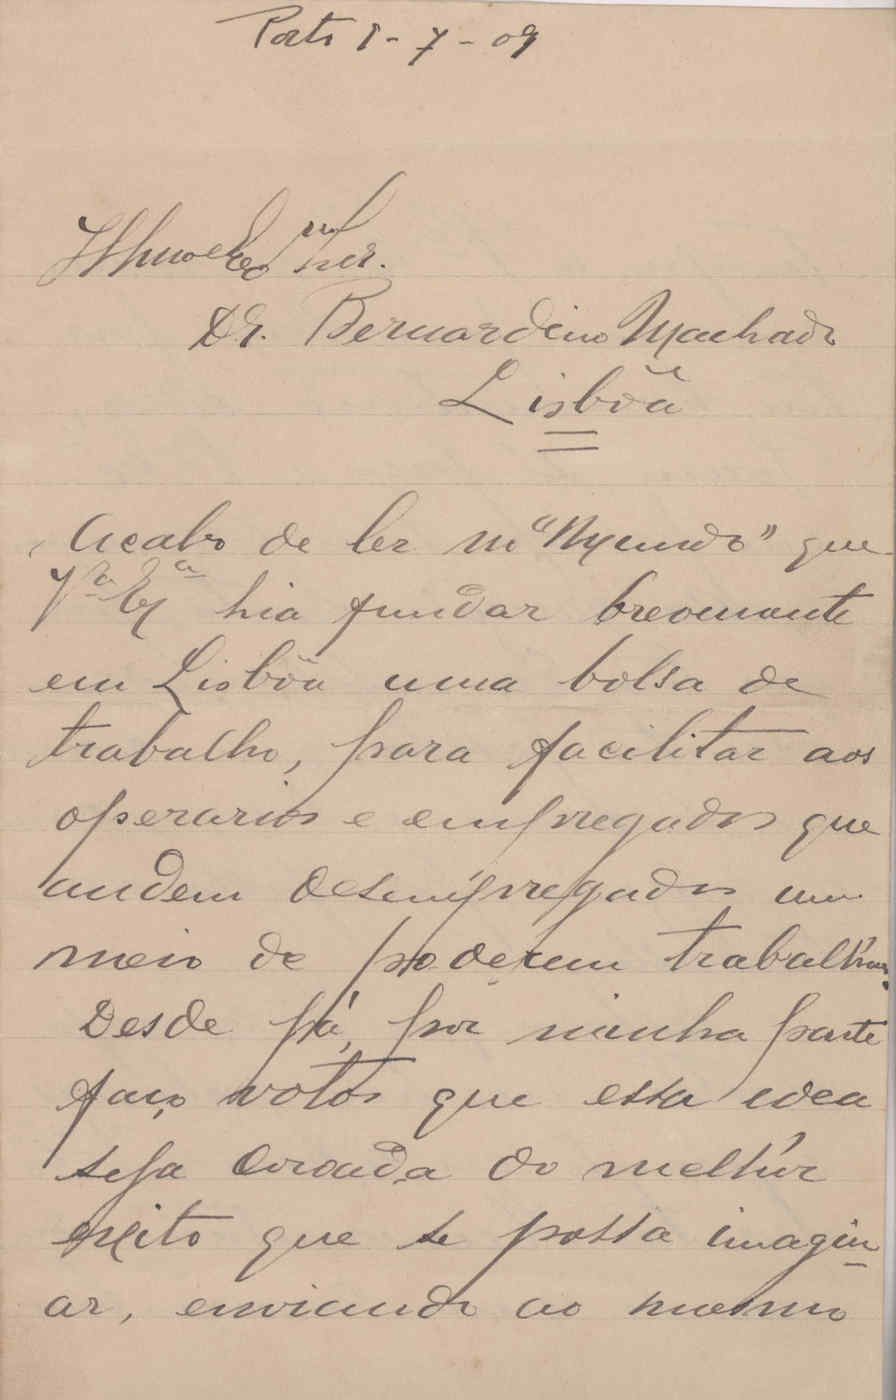 Porto 1-7-09
Illmo e Exmo Snr.
Dr. Bernardino Machado
Lisbôa
Acabo de ler no "Mundo" que
Vª Exª hia fundar brevemente
em Lisbôa uma bolsa de
trabalho, para facilitar aos
operarios e empregados que
andem desempregados um
meio de poderem trabalhar.
Desde já, por minha parte
faço votos que essa idea
seja coroada do melhor
exito que se possa imagin
ar, enviando ao mesmo